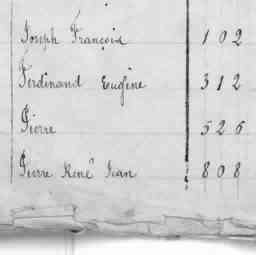 Joseph François 102
Ferdinand Eugène 312
Pierre 526
Pierre René Jean 808